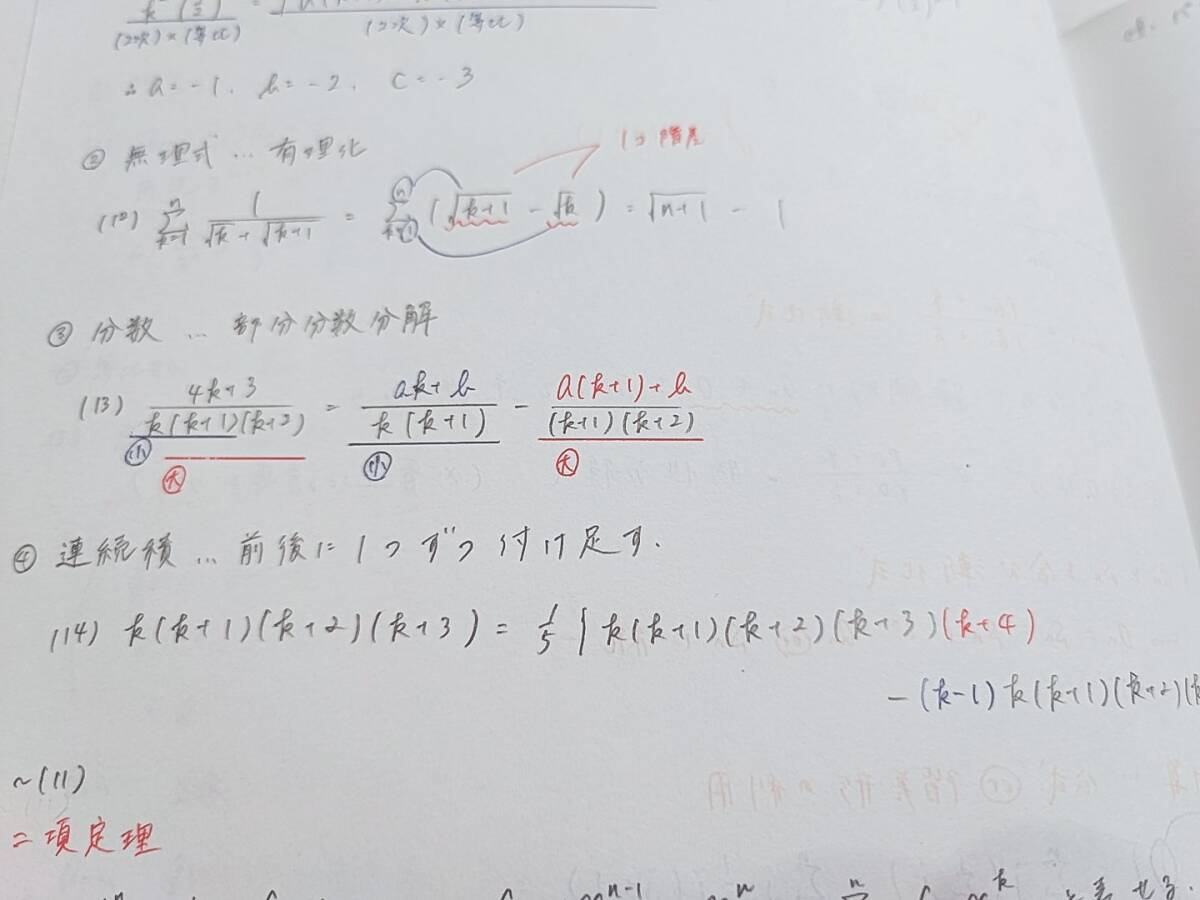 (2次)×(等比) (2次)×(等比)
∴ a = -1, b = -2, c = -3
② 無理式 … 有理化
1つ階差
(12) Σ_{k=1}^{n} 1/(√k + √(k+1)) = Σ_{k=1}^{n} (√(k+1) - √k) = √(n+1) - 1
③ 分数 … 部分分数分解
(13) (4k+3)/(k(k+1)(k+2)) = (ak+b)/(k(k+1)) - (a(k+1)+b)/((k+1)(k+2))
小 大 小 大
④ 連続積 … 前後に1つずつ付け足す.
(14) k(k+1)(k+2)(k+3) = 1/5 { k(k+1)(k+2)(k+3)(k+4)
-(k-1)k(k+1)(k+2)(k
~(11)
二項定理